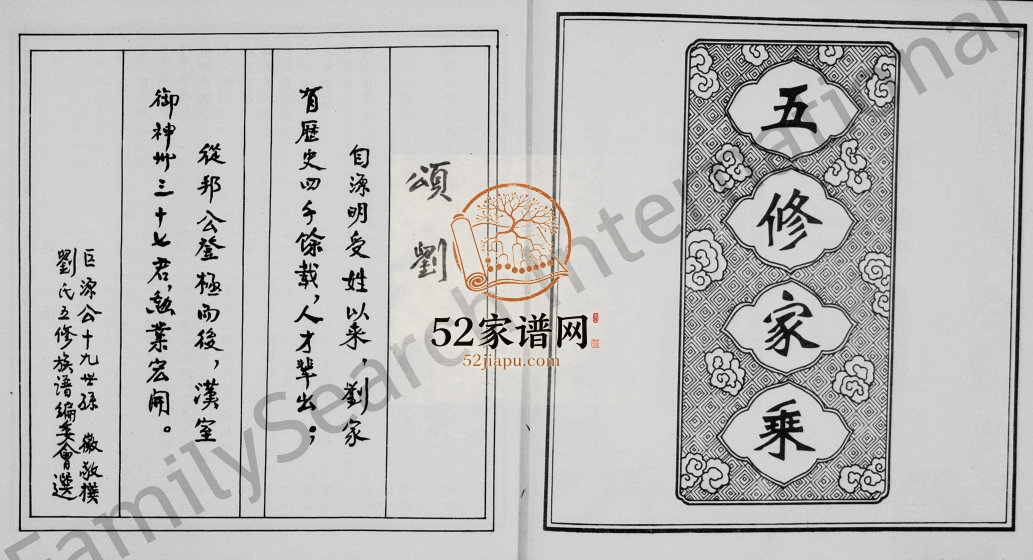 五修家乘
頌劉
自源明受姓以来，劉家
有歷史四千餘载，人才辈出；
從邦公登極而後，漢室
御神州三十七君，勲業宏開。
巨源公十九世孫 徽敬撰
劉氏五修族谱編委會選
52家谱网
52jiapu.com
FamilySearch International